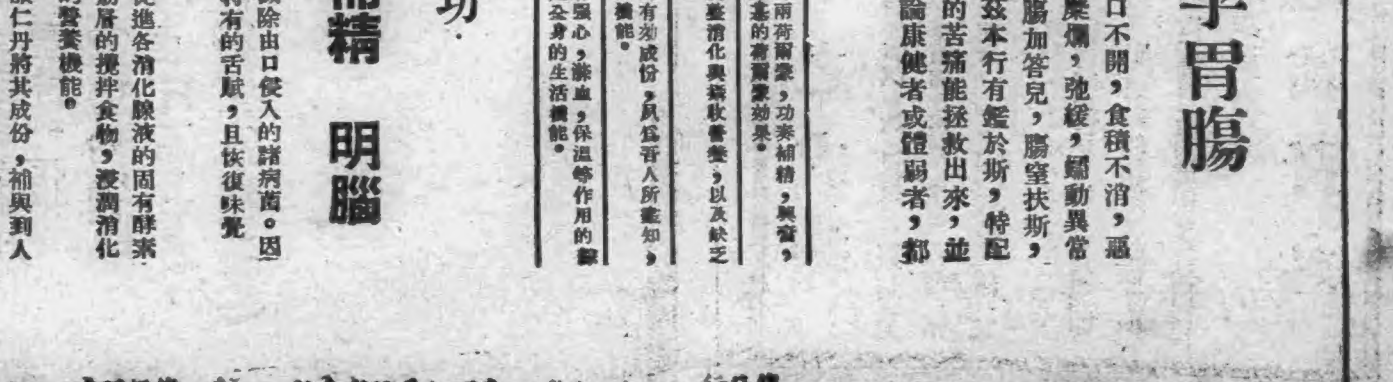 胃腸
口不開，食積不消，惡
糜爛，弛緩，蠕動異常
腸加答兒，腸窒扶斯，
茲本行有鑑於斯，特配
的苦痛能拯救出來，並
論康健者或體弱者，都
兩荷爾蒙，功奏補精，興奮，
基的荷爾蒙効果。
整消化與吸收營養，以及缺乏
有効成份，夙爲吾人所能知，
機能。
强心，滌血，保溫等作用的
全身的生活機能。
功．
補精 明腦
除由口侵入的諸病菌。因
特有的舌賦，且恢復味覺
促進各消化腺液的固有酵素
筋層的攪拌食物，浸潤消化
的營養機能。
仁丹將其成份，補與到人